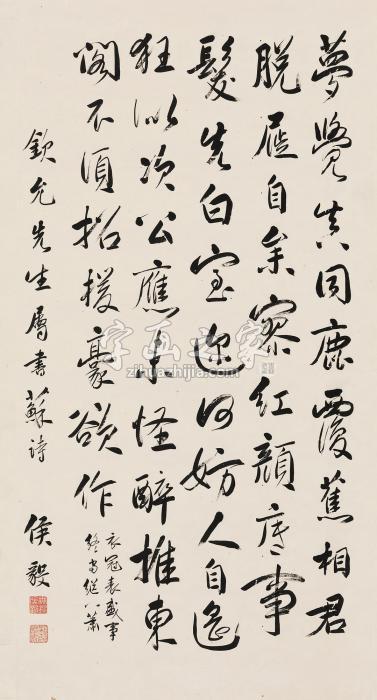 夢覺真同鹿覆蕉相君
脱屣自參寥紅顏底事
髮先白室迩何妨人自遙
狂似次公應未怪醉推東
閣不須招援豪欲作
衣冠表盛事
終當繼八蕭
欽允先生屬書蘇詩 侯毅
字画之家
zihuazhijia.com